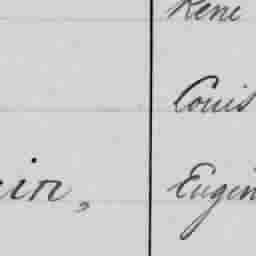 René
Louis
in,
Eugèn